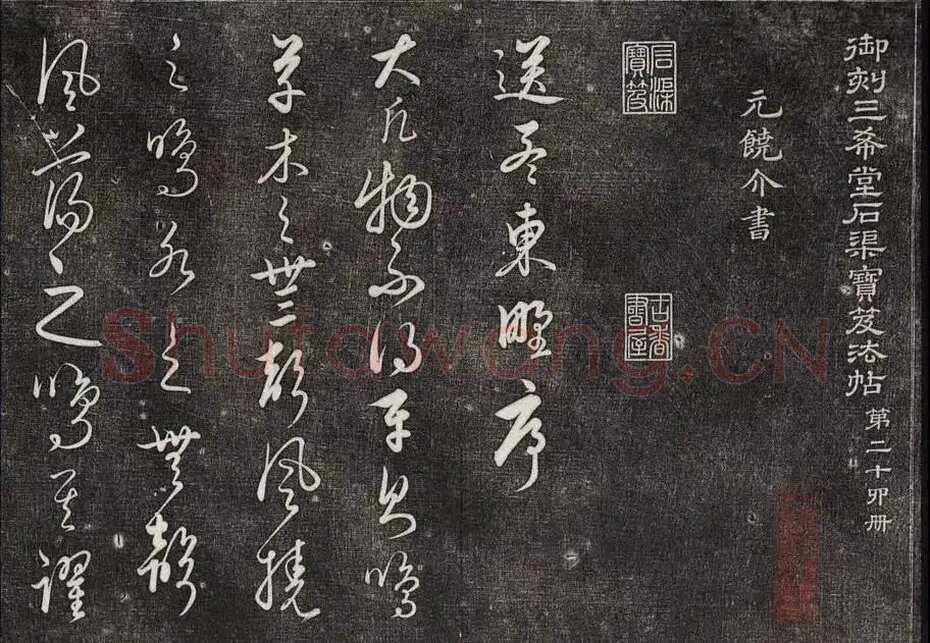 御刻三希堂石渠寶笈法帖 第二十四册
元饒介書
石渠寶笈
古香書屋
送孟東野序
大凡物不得平則鳴
草木之無聲風撓
之鳴水之無聲
風蕩之鳴其躍
Shufawang.CN